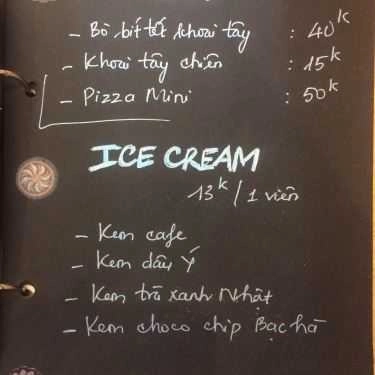 - Bò bít tết khoai tây : 40k
- Khoai tây chiên : 15k
- Pizza Mini : 50k
ICE CREAM
13k / 1 viên
- Kem cafe
- Kem dâu Ý
- Kem trà xanh Nhật
- Kem choco chip Bạc hà